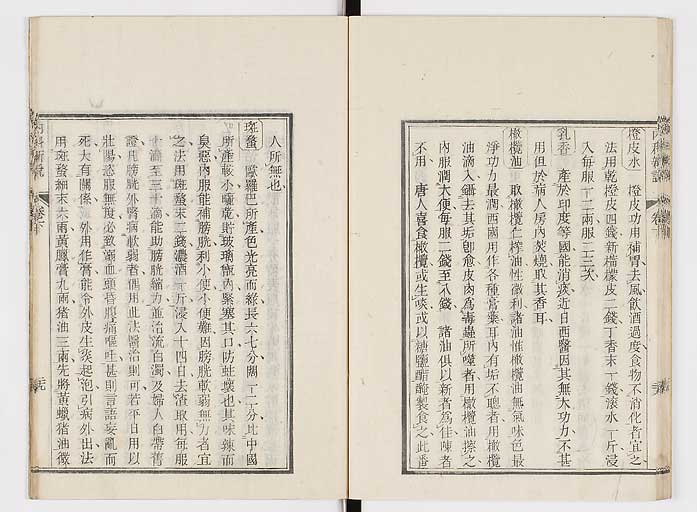 橙皮水 橙皮功用補胃去風飲酒過度食物不消化者宜之
法用乾橙皮四錢新檸檬皮二錢丁香末一錢滚水一斤浸
入每服一二兩服二三次
乳香 產於印度等國能消痰近日西醫因其無大功力不甚
用但於病人房內焚燒取其香耳
橄欖油 取橄欖仁榨油性微利諸油惟橄欖油無氣味色最
淨功力最潤西國用作各種膏藥耳內有垢不聰者用橄欖
油滴入鑷去其垢卽愈皮肉為毒蟲所螫者用橄欖油擦之
內服潤大便每服二錢至八錢 諸油俱以新者為佳陳者
不用 唐人喜食橄欖或生啖或以糖鹽醋醃製食之此番
人所無也
斑蝥 歐羅巴所產色光亮而綠長六七分闊一二分比中國
所產較小曬乾貯玻璃瓶內緊塞其口防蛀壞也其味辣而
臭惡內服能補膀胱利小便小便難因膀胱軟弱無力者宜
之法用斑蝥末二錢濃酒一斤浸入十四日去渣取用每服
十滴至三十滴能助膀胱縮力並治流白濁及婦人白帶舊
證凡膀胱外腎病軟弱者偶用此法醫治則可若平日用以
壯陽恣服無度必致溺血頭昏腹痛嘔吐甚則言語妄亂而
死大有關係 外用作膏能令外皮生炎起泡引病外出法
用斑蝥細末六兩黃鳳膏九兩猪油三兩先將黃蠟猪油微
內科新說
卷下